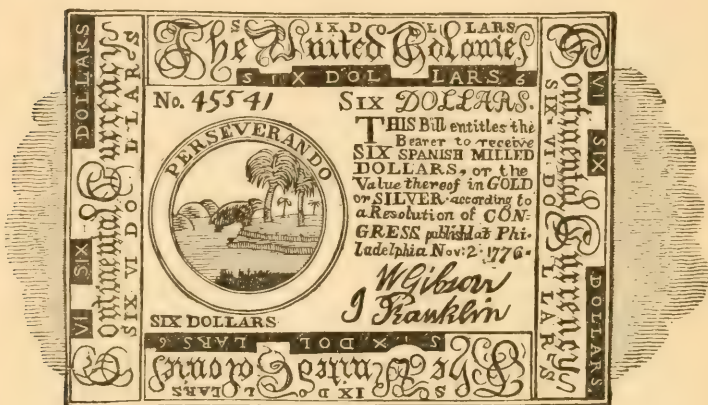 SIX DOLLARS
The United Colonies
SIX DOLLARS 6
No. 45541
SIX DOLLARS.
THIS Bill entitles the
Bearer to receive
SIX SPANISH MILLED
DOLLARS, or the
Value thereof in GOLD
or SILVER according to
a Resolution of CON-
GRESS publish'd at Phi-
ladelphia Nov: 2. 1776.
W Gibson
J Franklin
PERSEVERANDO
SIX DOLLARS
VI SIX DOLLARS
Continental Currency
SIX VI DOLLARS
VI SIX DOLLARS.
Continental Currency
SIX. VI DOLLARS
SIX DOLLARS 6
The United Colonies
SIX DOLLARS